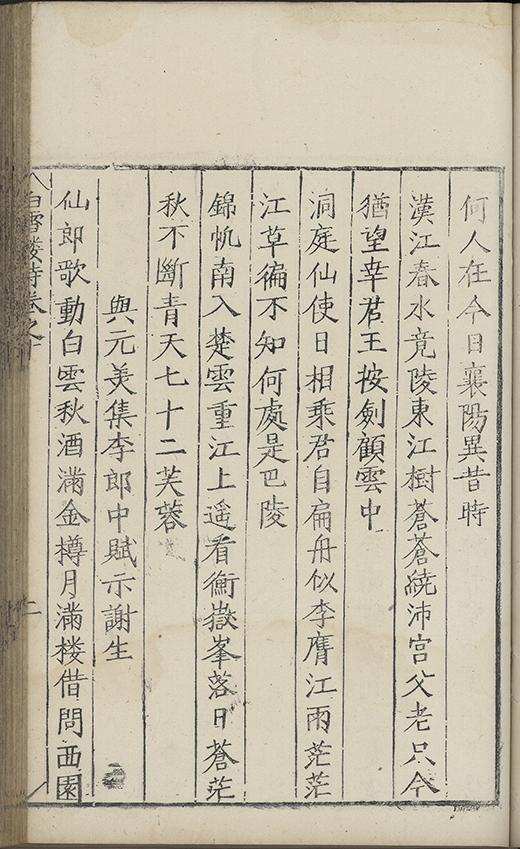 何人在今日襄陽異昔時
漢江春水竟陵東江樹蒼蒼繞沛宮父老只今
猶望幸君王按劍顧雲中
洞庭仙使日相乘君自扁舟似李膺江雨茫茫
江草徧不知何處是巴陵
錦帆南入楚雲重江上遥看衡嶽峯落日蒼茫
秋不斷青天七十二芙蓉
與元美集李郎中賦示謝生
仙郎歌動白雲秋酒滿金樽月滿楼借問西園
白雪楼詩卷之十
二